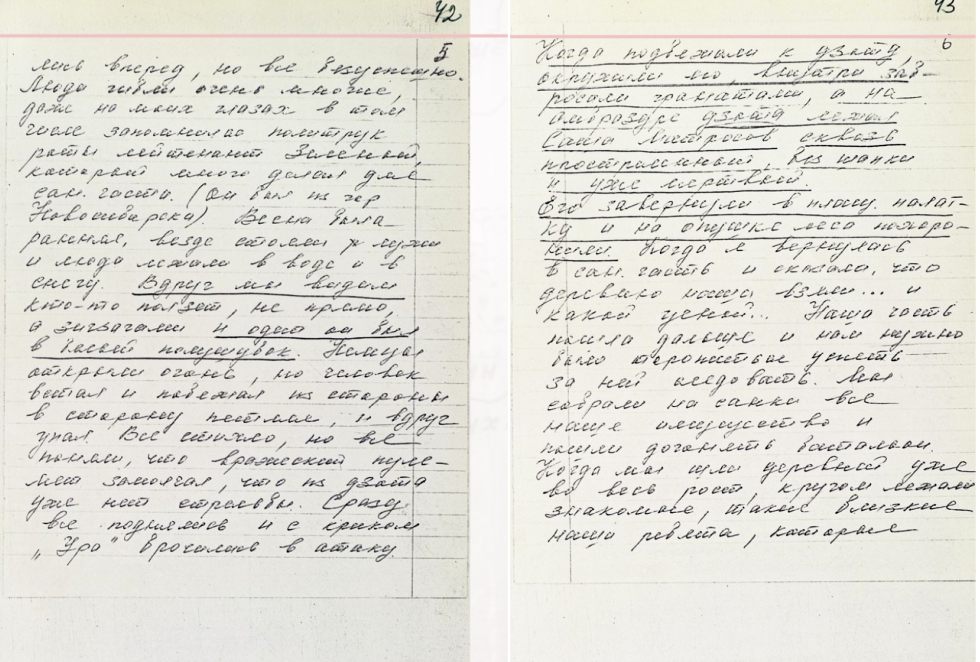 42
5
лись вперед, но все безуспешно.
Люди гибли очень многие,
даже на моих глазах в том
числе запомнился политрук
роты лейтенант Зеленый,
который много делал для
сан. части. (Он был из гор
Новосибирска). Весна была
ранняя, везде стояли лужи
и люди лежали в воде и в
снегу. Вдруг мы видим
кто-то ползет, не прямо,
а зигзагами и одет он был
в белый полушубок. Немцы
открыли огонь, но человек
встал и побежал
в сторону и вдруг
упал. Все стихло, но все
поняли, что вражеский пуле-
мет замолчал, что из дзота
уже нет стрельбы. Сразу
все поднялись и с криком
„Ура" бросились в атаку.
43
6
Когда подбежали к дзоту,
окружили его, внутри заб-
росали гранатами, а на
амбразуре дзота лежал
Саша Матросов сквозь
простреленный, без шапки
и уже мертвый.
Его завернули в плащ. палат-
ку и на опушке леса похоро-
нили. Когда я вернулась
в сан. часть и сказали, что
деревню наши взяли... и
какой ценой... Наша часть
пошла дальше и нам нужно
было успеть
за ней следовать. Мы
собрали на санки все
наше имущество и
пошли догонять батальон.
Когда мы шли деревней уже
во весь рост, кругом лежали
знакомые, такие близкие
наши ребята, которые